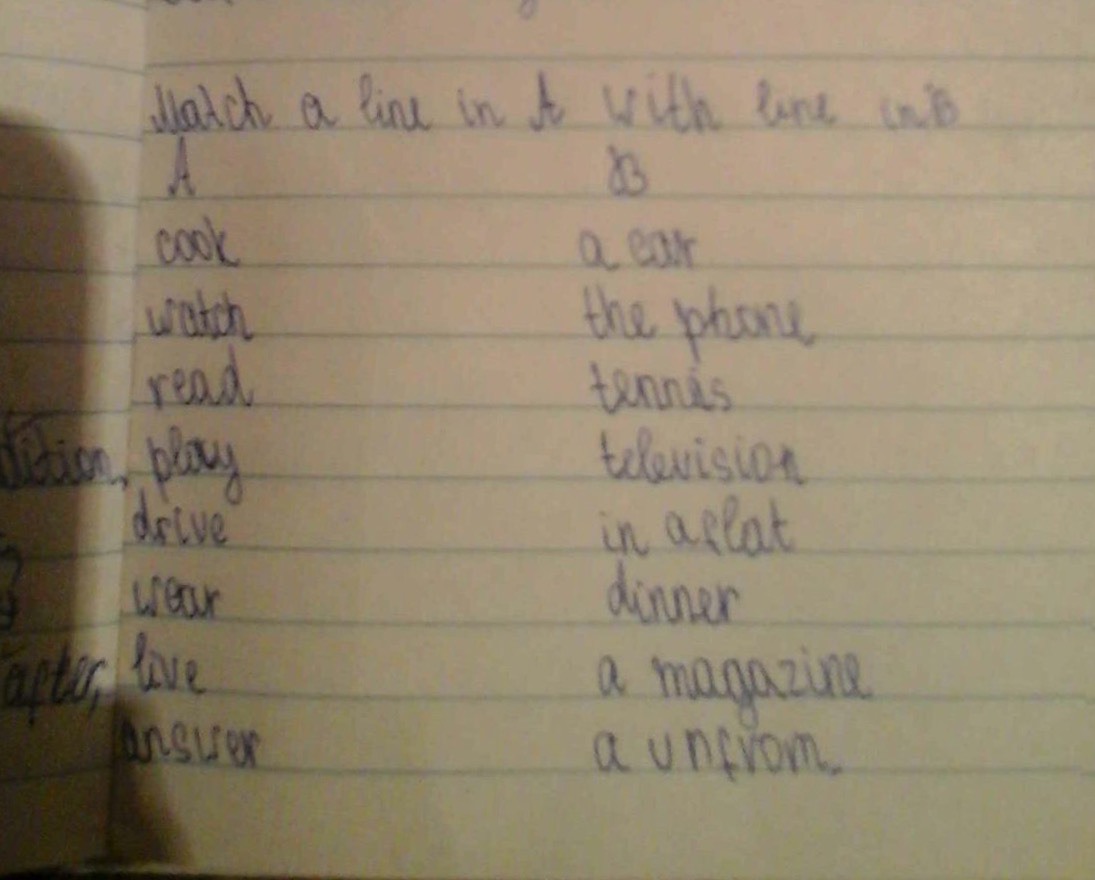 Match a line in A with line in B
A B
cook a car
watch the phone
read tennis
play television
drive in a flat
wear dinner
after, live a magazine
answer a unfrom.